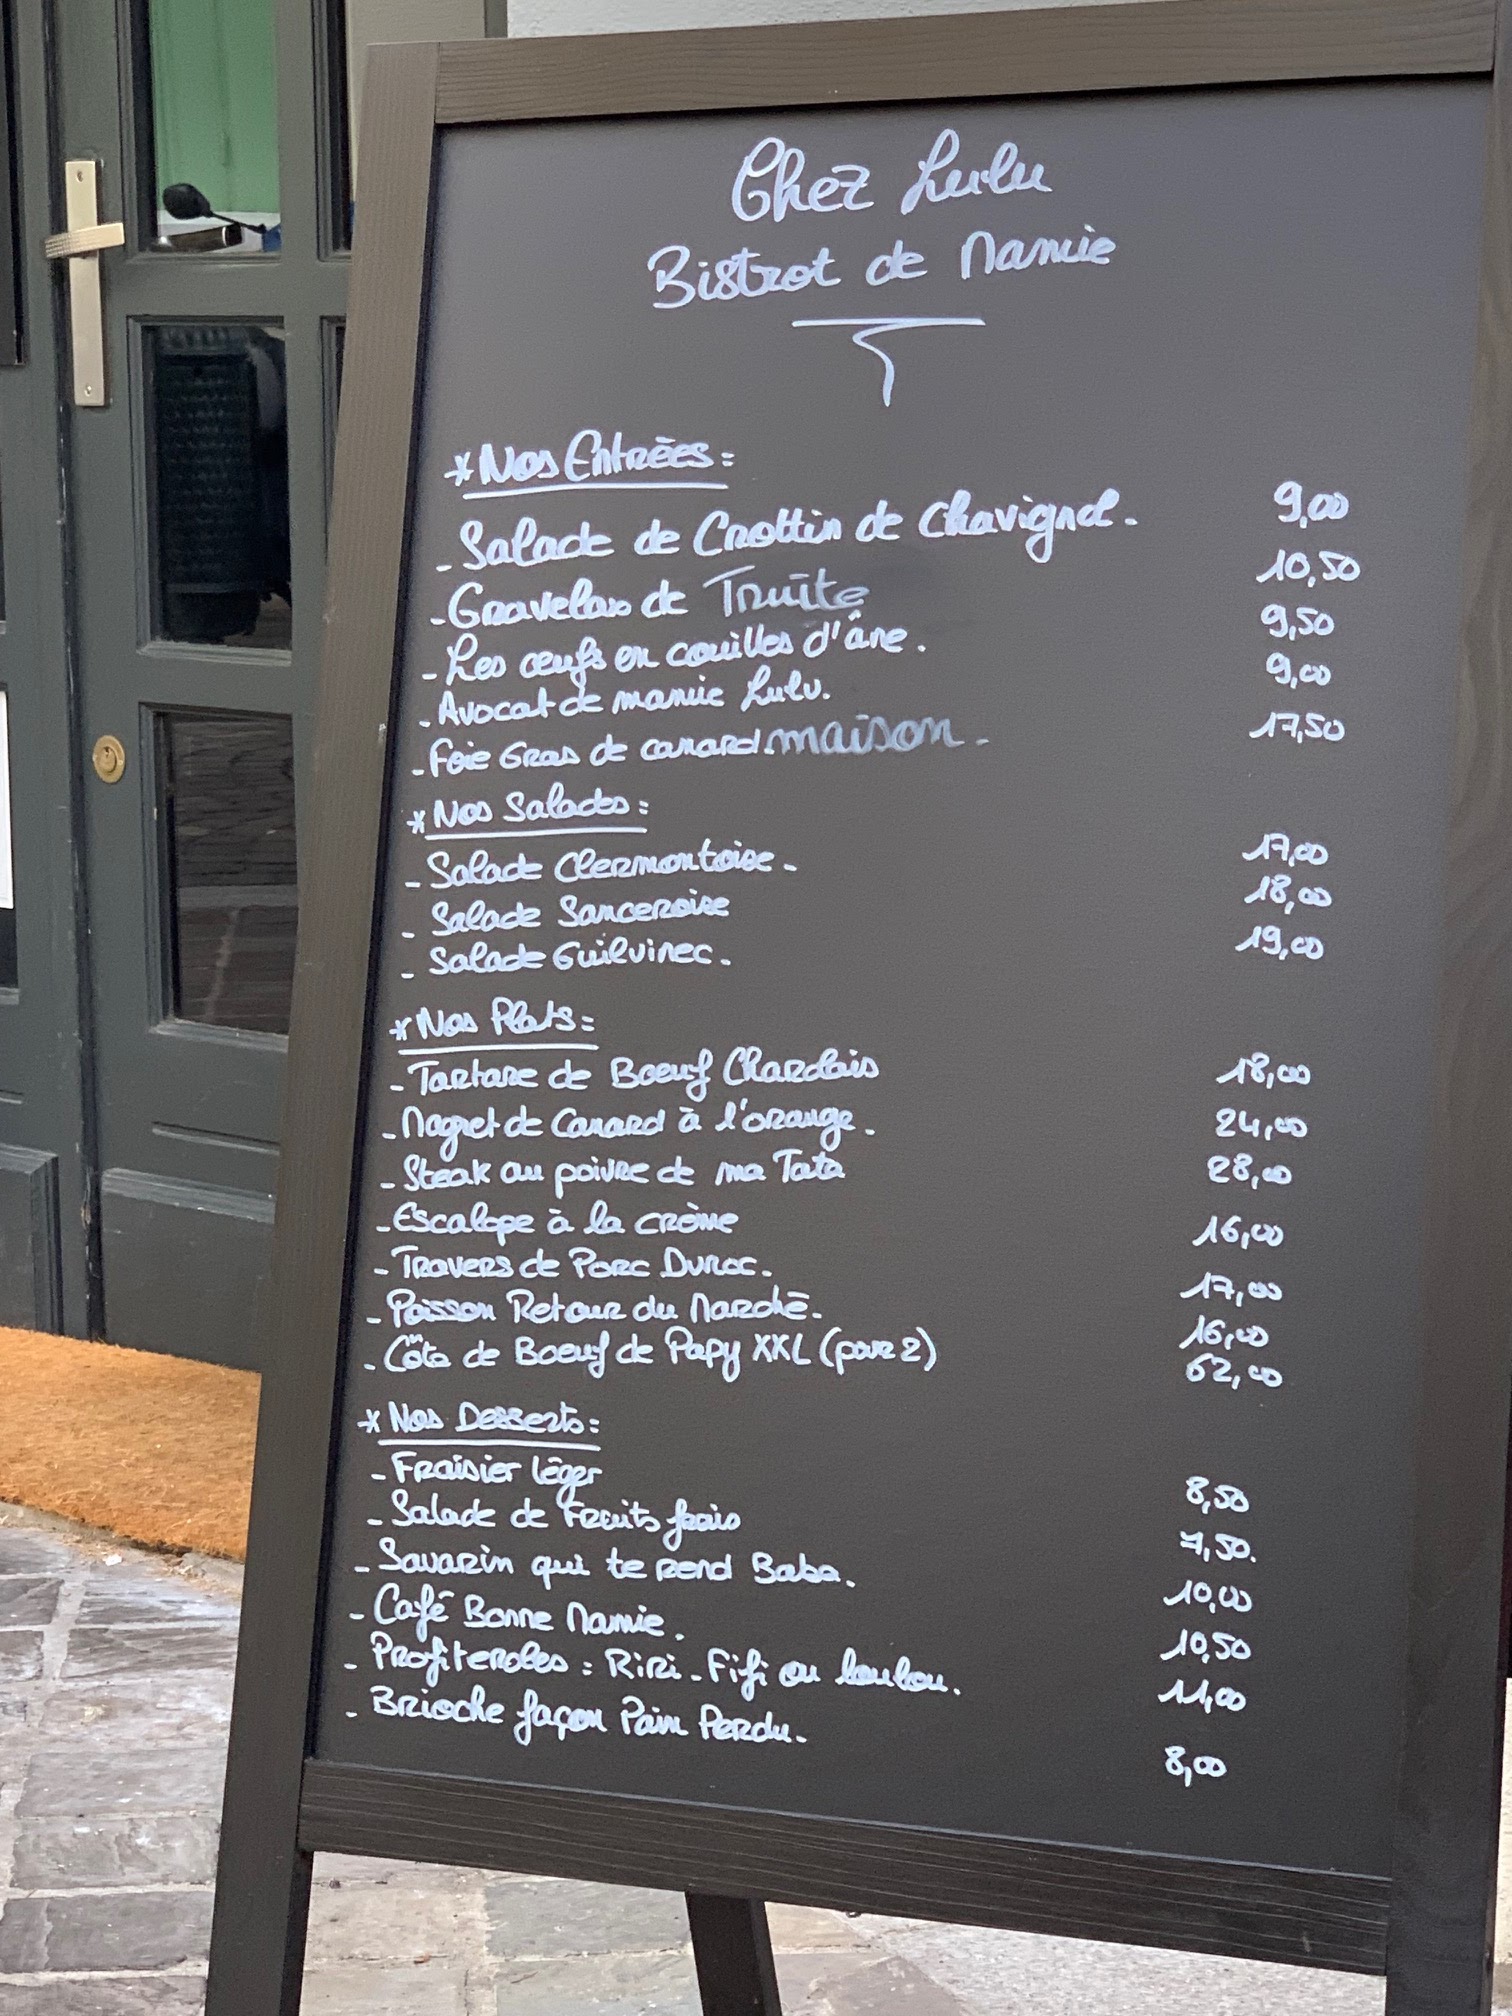 Chez Lulu
Bistrot de Mamie
* Nos Entrées :
- Salade de Crottin de Chavignol. 9,00
- Gravelax de Truite 10,50
- Les œufs en couilles d'âne. 9,50
- Avocat de mamie Lulu. 9,00
- Foie Gras de canard maison. 17,50
* Nos Salades :
- Salade Clermontoise. 17,00
- Salade Sanceroise 18,00
- Salade Guilvinec. 19,00
* Nos Plats :
- Tartare de Boeuf Charolais 18,00
- Magret de Canard à l'orange. 24,00
- Steak au poivre de ma Tata 28,00
- Escalope à la crème 16,00
- Travers de Porc Duroc. 17,00
- Poisson Retour du Marché. 16,00
- Côte de Boeuf de Papy XXL (pour 2) 62,00
* Nos Desserts :
- Fraisier léger 8,50
- Salade de Fruits frais 7,50.
- Savarin qui te rend Baba. 10,00
- Café Bonne Mamie. 10,50
- Profiteroles : Riri - Fifi ou loulou. 11,00
- Brioche façon Pain Perdu. 8,00